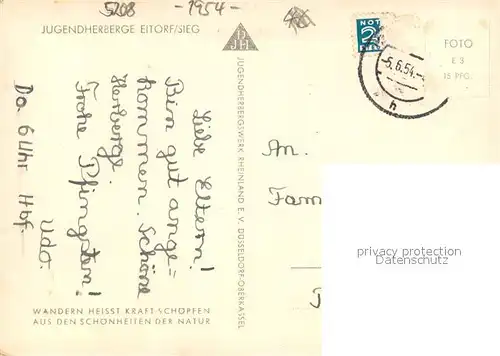 5208 - 1954 -
JUGENDHERBERGE EITORF/SIEG
DJH
NOT
2
FOTO
E 3
15 PFG.
-5.6.54.-
h
Liebe Eltern!
Bin gut ange=
kommen. Schöne
Herberge.
Frohe Pfingsten!
Udo.
Do 6 Uhr Hbf.
JUGENDHERBERGSWERK RHEINLAND E.V. DÜSSELDORF-OBERKASSEL
An.
Fam
privacy protection
Datenschutz
WANDERN HEISST KRAFT SCHÖPFEN
AUS DEN SCHÖNHEITEN DER NATUR